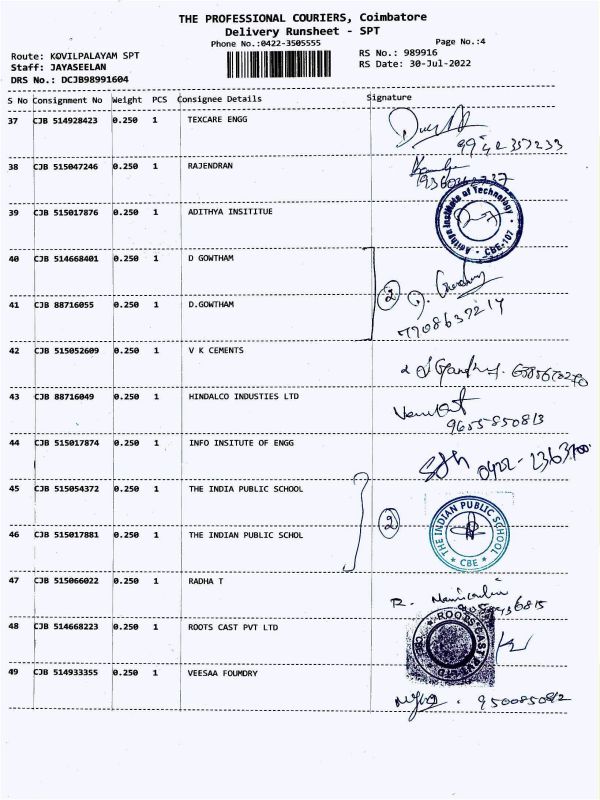 THE PROFESSIONAL COURIERS, Coimbatore
Delivery Runsheet - SPT
Phone No.:0422-3505555
Page No.:4
Route: KOVILPALAYAM SPT
RS No.: 989916
Staff: JAYASEELAN
RS Date: 30-Jul-2022
DRS No.: DCJB98991604
S No Consignment No Weight PCS Consignee Details Signature
37 CJB 514928423 0.250 1 TEXCARE ENGG
38 CJB 515047246 0.250 1 RAJENDRAN
39 CJB 515017876 0.250 1 ADITHYA INSITITUE
Adithya Institute of Technology
CBE-107
40 CJB 514668401 0.250 1 D GOWTHAM
2
41 CJB 88716055 0.250 1 D.GOWTHAM
7708637217
42 CJB 515052609 0.250 1 V K CEMENTS
43 CJB 88716049 0.250 1 HINDALCO INDUSTIES LTD
9655850813
44 CJB 515017874 0.250 1 INFO INSITUTE OF ENGG
45 CJB 515054372 0.250 1 THE INDIA PUBLIC SCHOOL
2
THE INDIAN PUBLIC SCHOOL
CBE
46 CJB 515017881 0.250 1 THE INDIAN PUBLIC SCHOL
47 CJB 515066022 0.250 1 RADHA T
R.
48 CJB 514668223 0.250 1 ROOTS CAST PVT LTD
ROOTS CAST
49 CJB 514933355 0.250 1 VEESAA FOUMDRY
9500850812